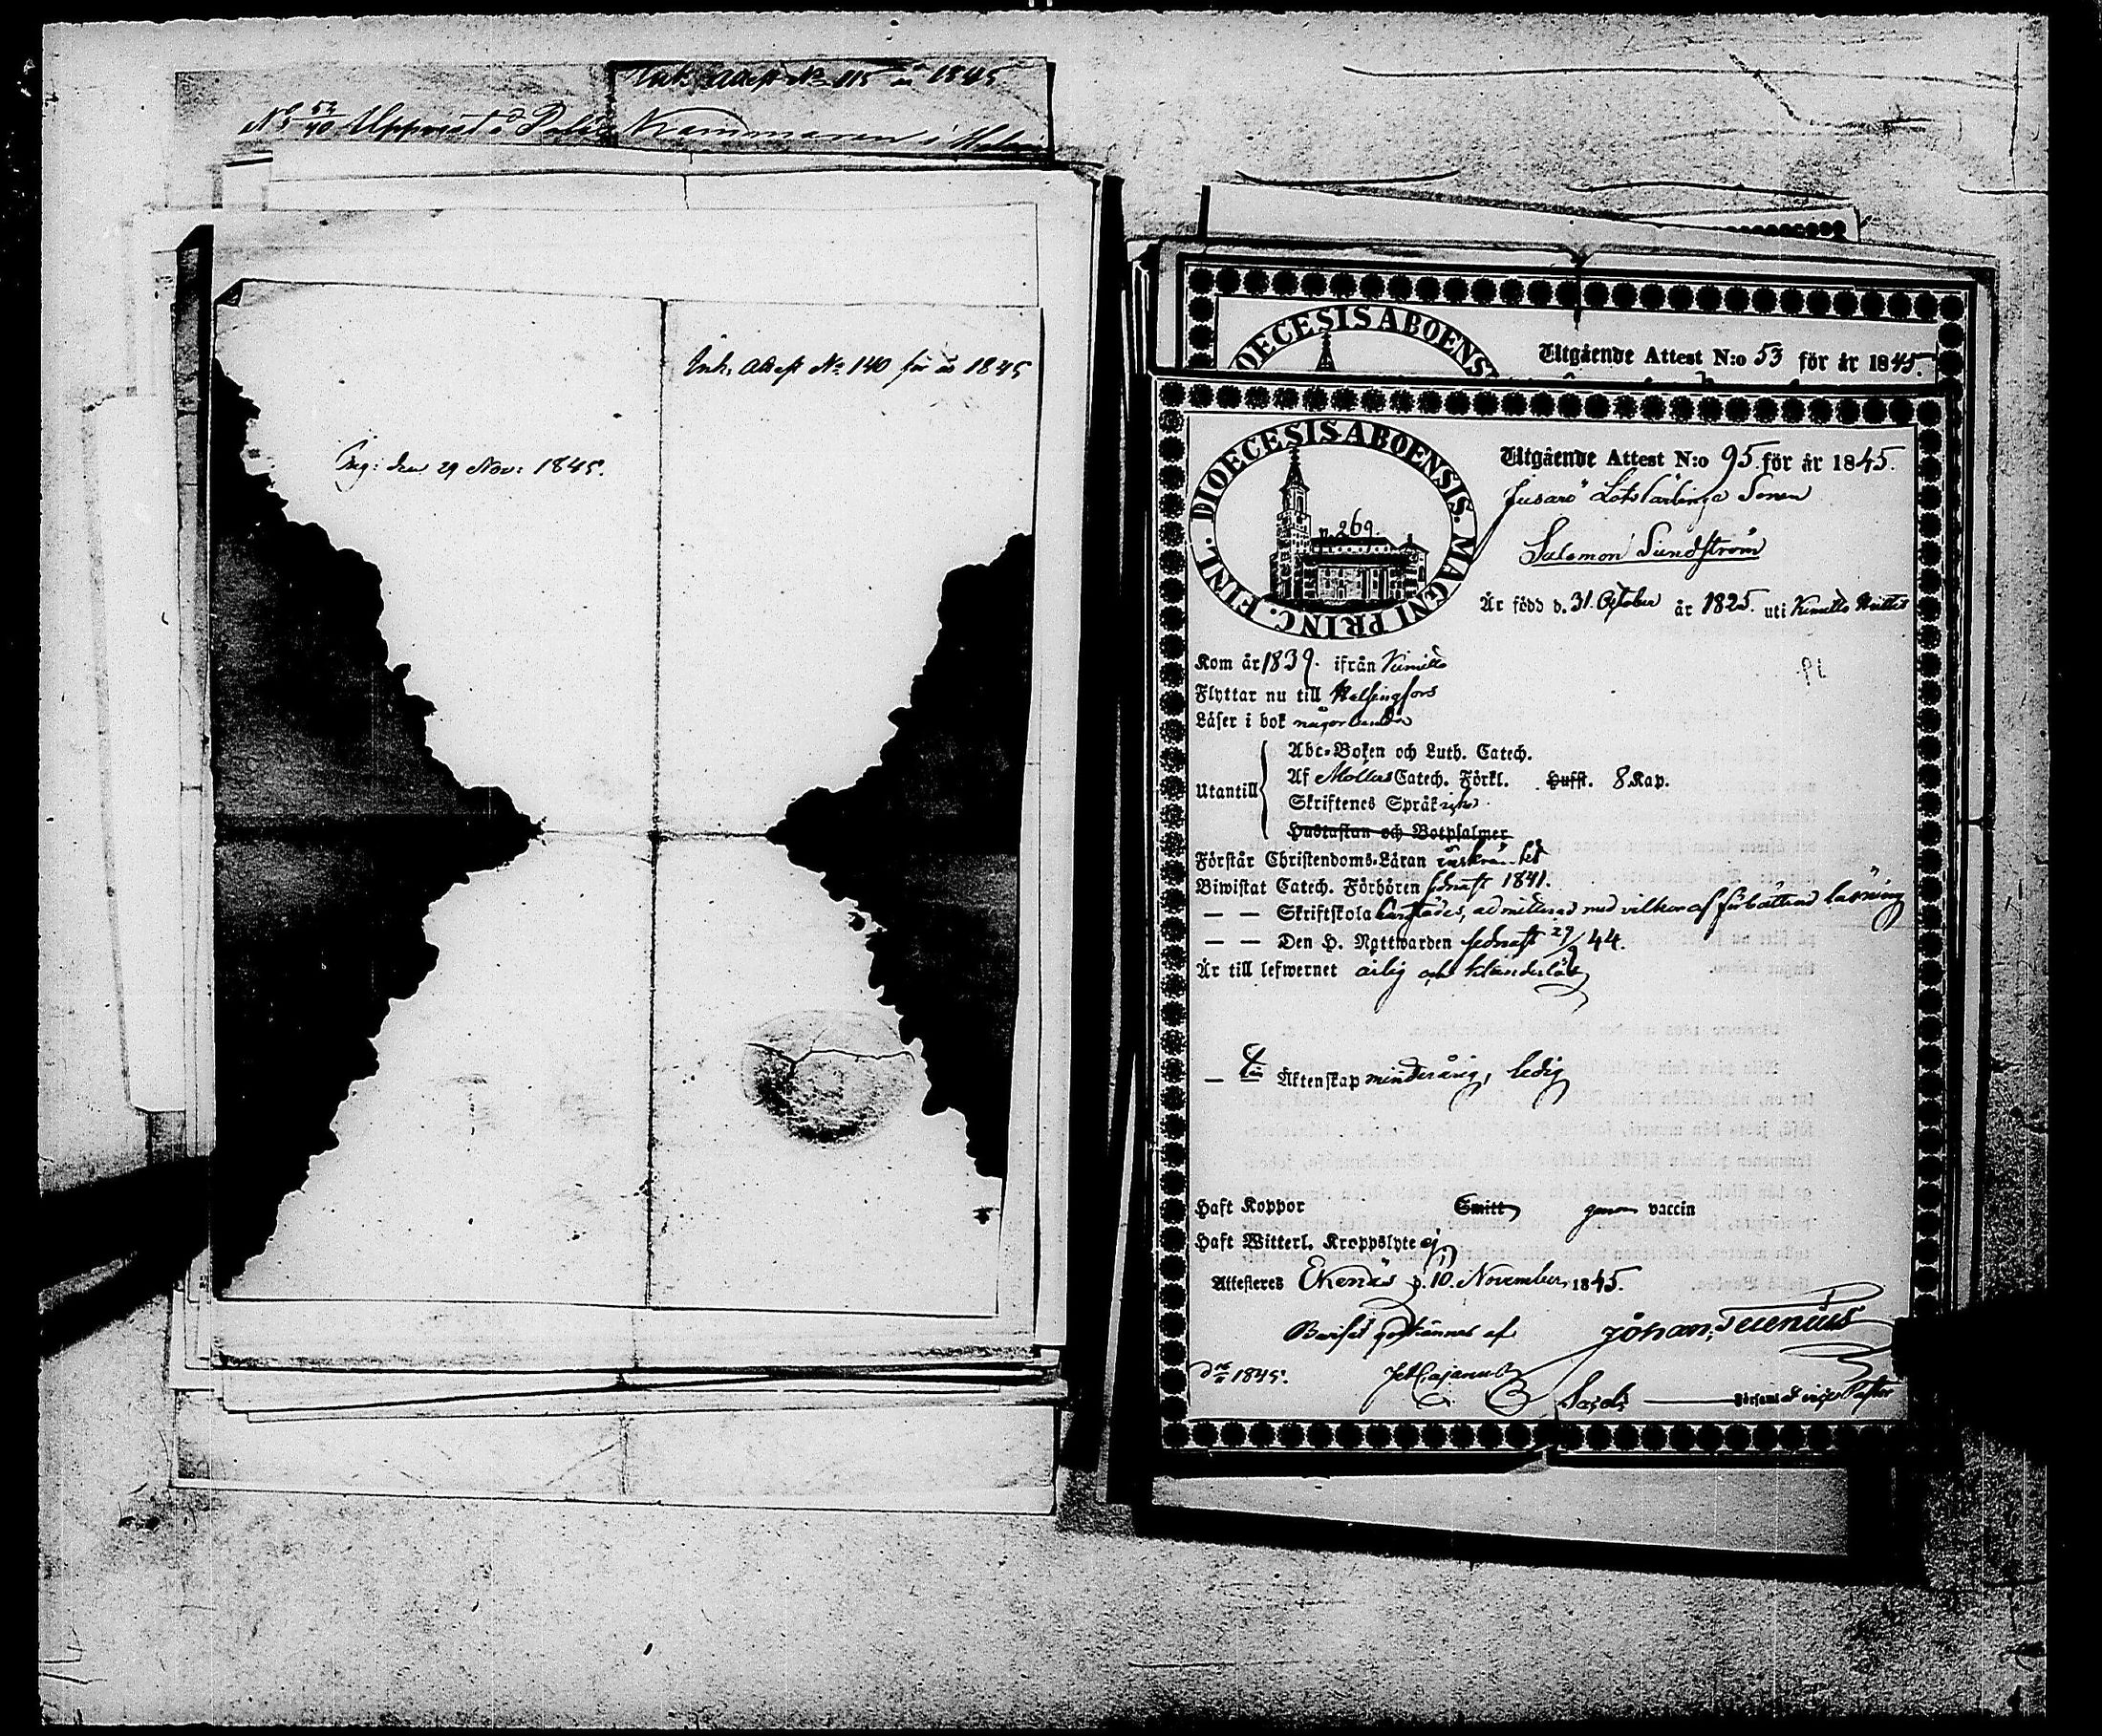 Ink. Attest No 115 år 1845
No 52/40 Uppvist å Polis Kammaren i
Ink. Attest No 140 för år 1845
Ing: den 29 Nov: 1845.
DIOECESIS ABOENS
Utgående Attest N:o 53 för år 1845.
DIOECESIS ABOENSIS. MAGNI PRINC. FINL.
269
Utgående Attest N:o 95 för år 1845.
Jusarö Lots lärlinga Sonen
Salomon Sundström
Är född d. 31 October år 1825 uti Kimito
Kom år 1839. ifrån Kimito
Flyttar nu till Helsingfors
Läser i bok någorlunda
Utantill
Abc-Boken och Luth. Catech.
Af Möllers Catech. Förkl. Hufst. 8 Kap.
Skriftenes Språk
Hustaflan och Botpsalmer
Förstår Christendoms-Läran inskränkt
Biwistat Catech. Förhören sednast 1841.
— — Skriftskola admitterad med vilkor af förbättrad läsning
— — Den H. Nattwarden sednast 29/9 44.
Är till lefwernet ärlig och klanderlös
— till Äktenskap minderårig, ledig
Haft Koppor Smitt genom vaccin
Haft Witterl. Kroppslyte ej
Attesteras Ekenäs d. 10. November 1845.
Beviset godkännes af Johan Telenius
1845. Cajanus
Sacell: Församl. vice Pastor